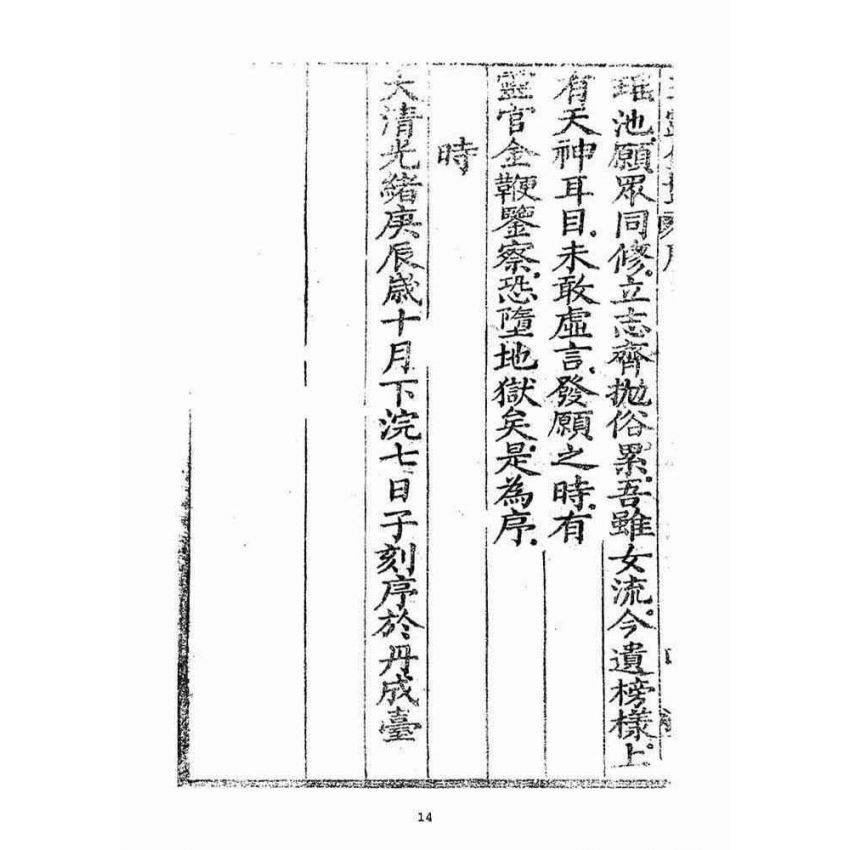 瑤池.願眾同修.立志齊拋俗累.吾雖女流.今遺榜樣.上
有天神耳目.未敢虛言.發願之時.有
靈官金鞭鑒察.恐墮地獄矣.是為序.
時
大清光緒庚辰歲十月下浣七日子刻序於丹成臺
14